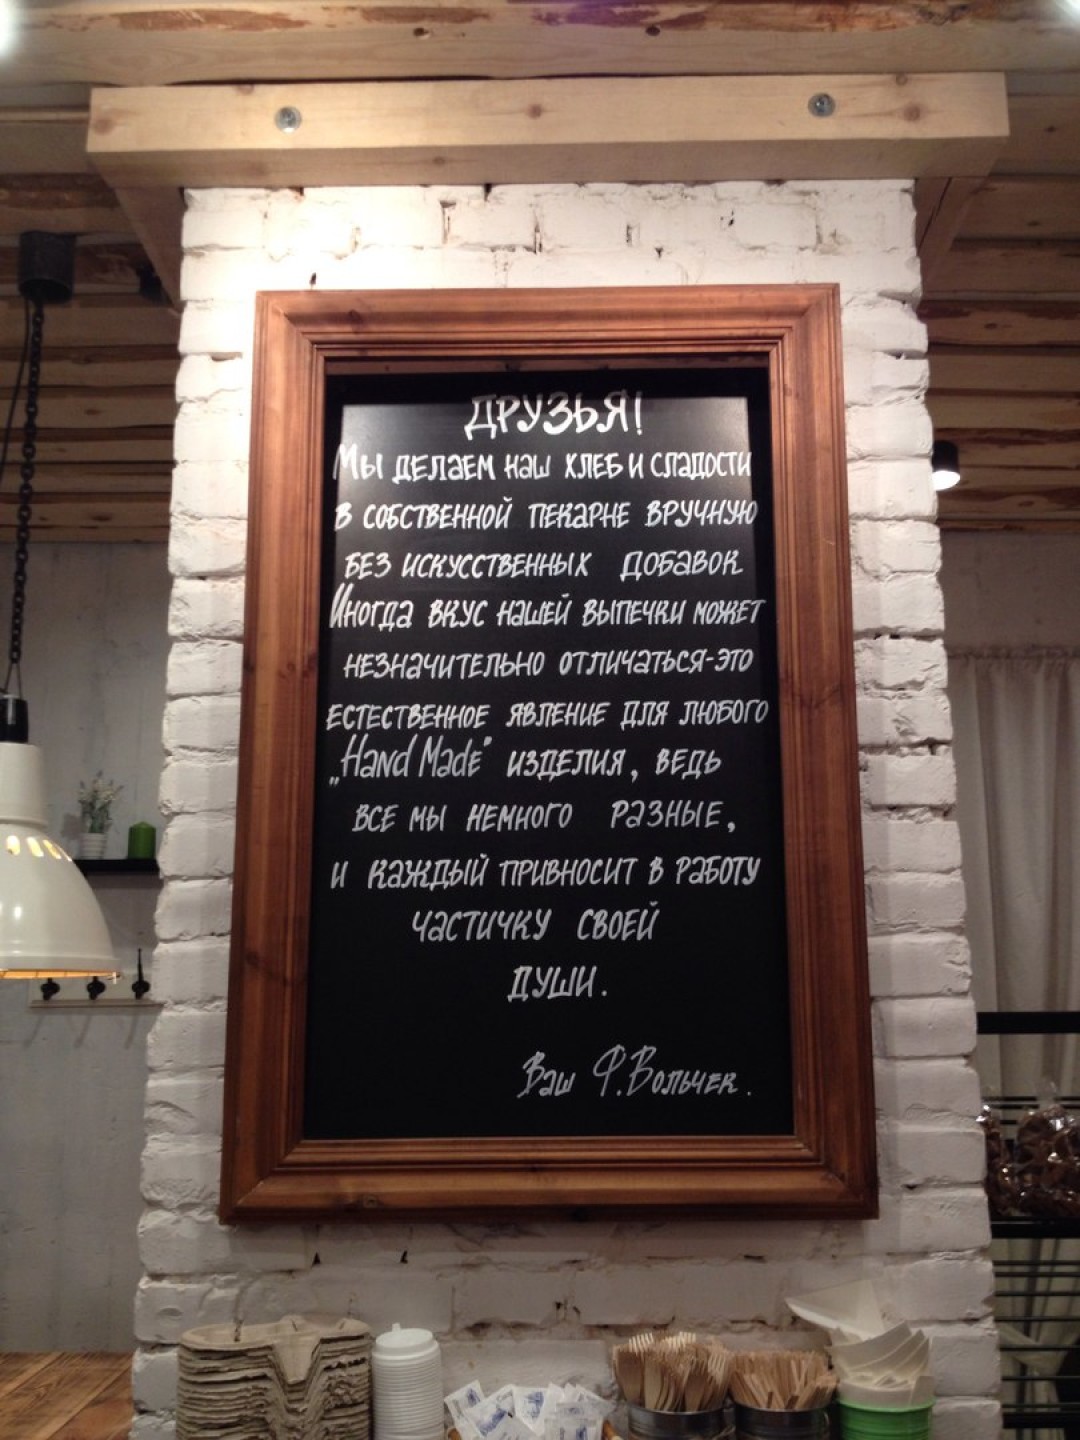 ДРУЗЬЯ!
Мы делаем наш хлеб и сладости
в собственной пекарне вручную
без искусственных добавок
Иногда вкус нашей выпечки может
незначительно отличаться-это
естественное явление для любого
„Hand Made" изделия, ведь
все мы немного разные,
и каждый привносит в работу
частичку своей
души.
Ваш Ф.Вольчек.